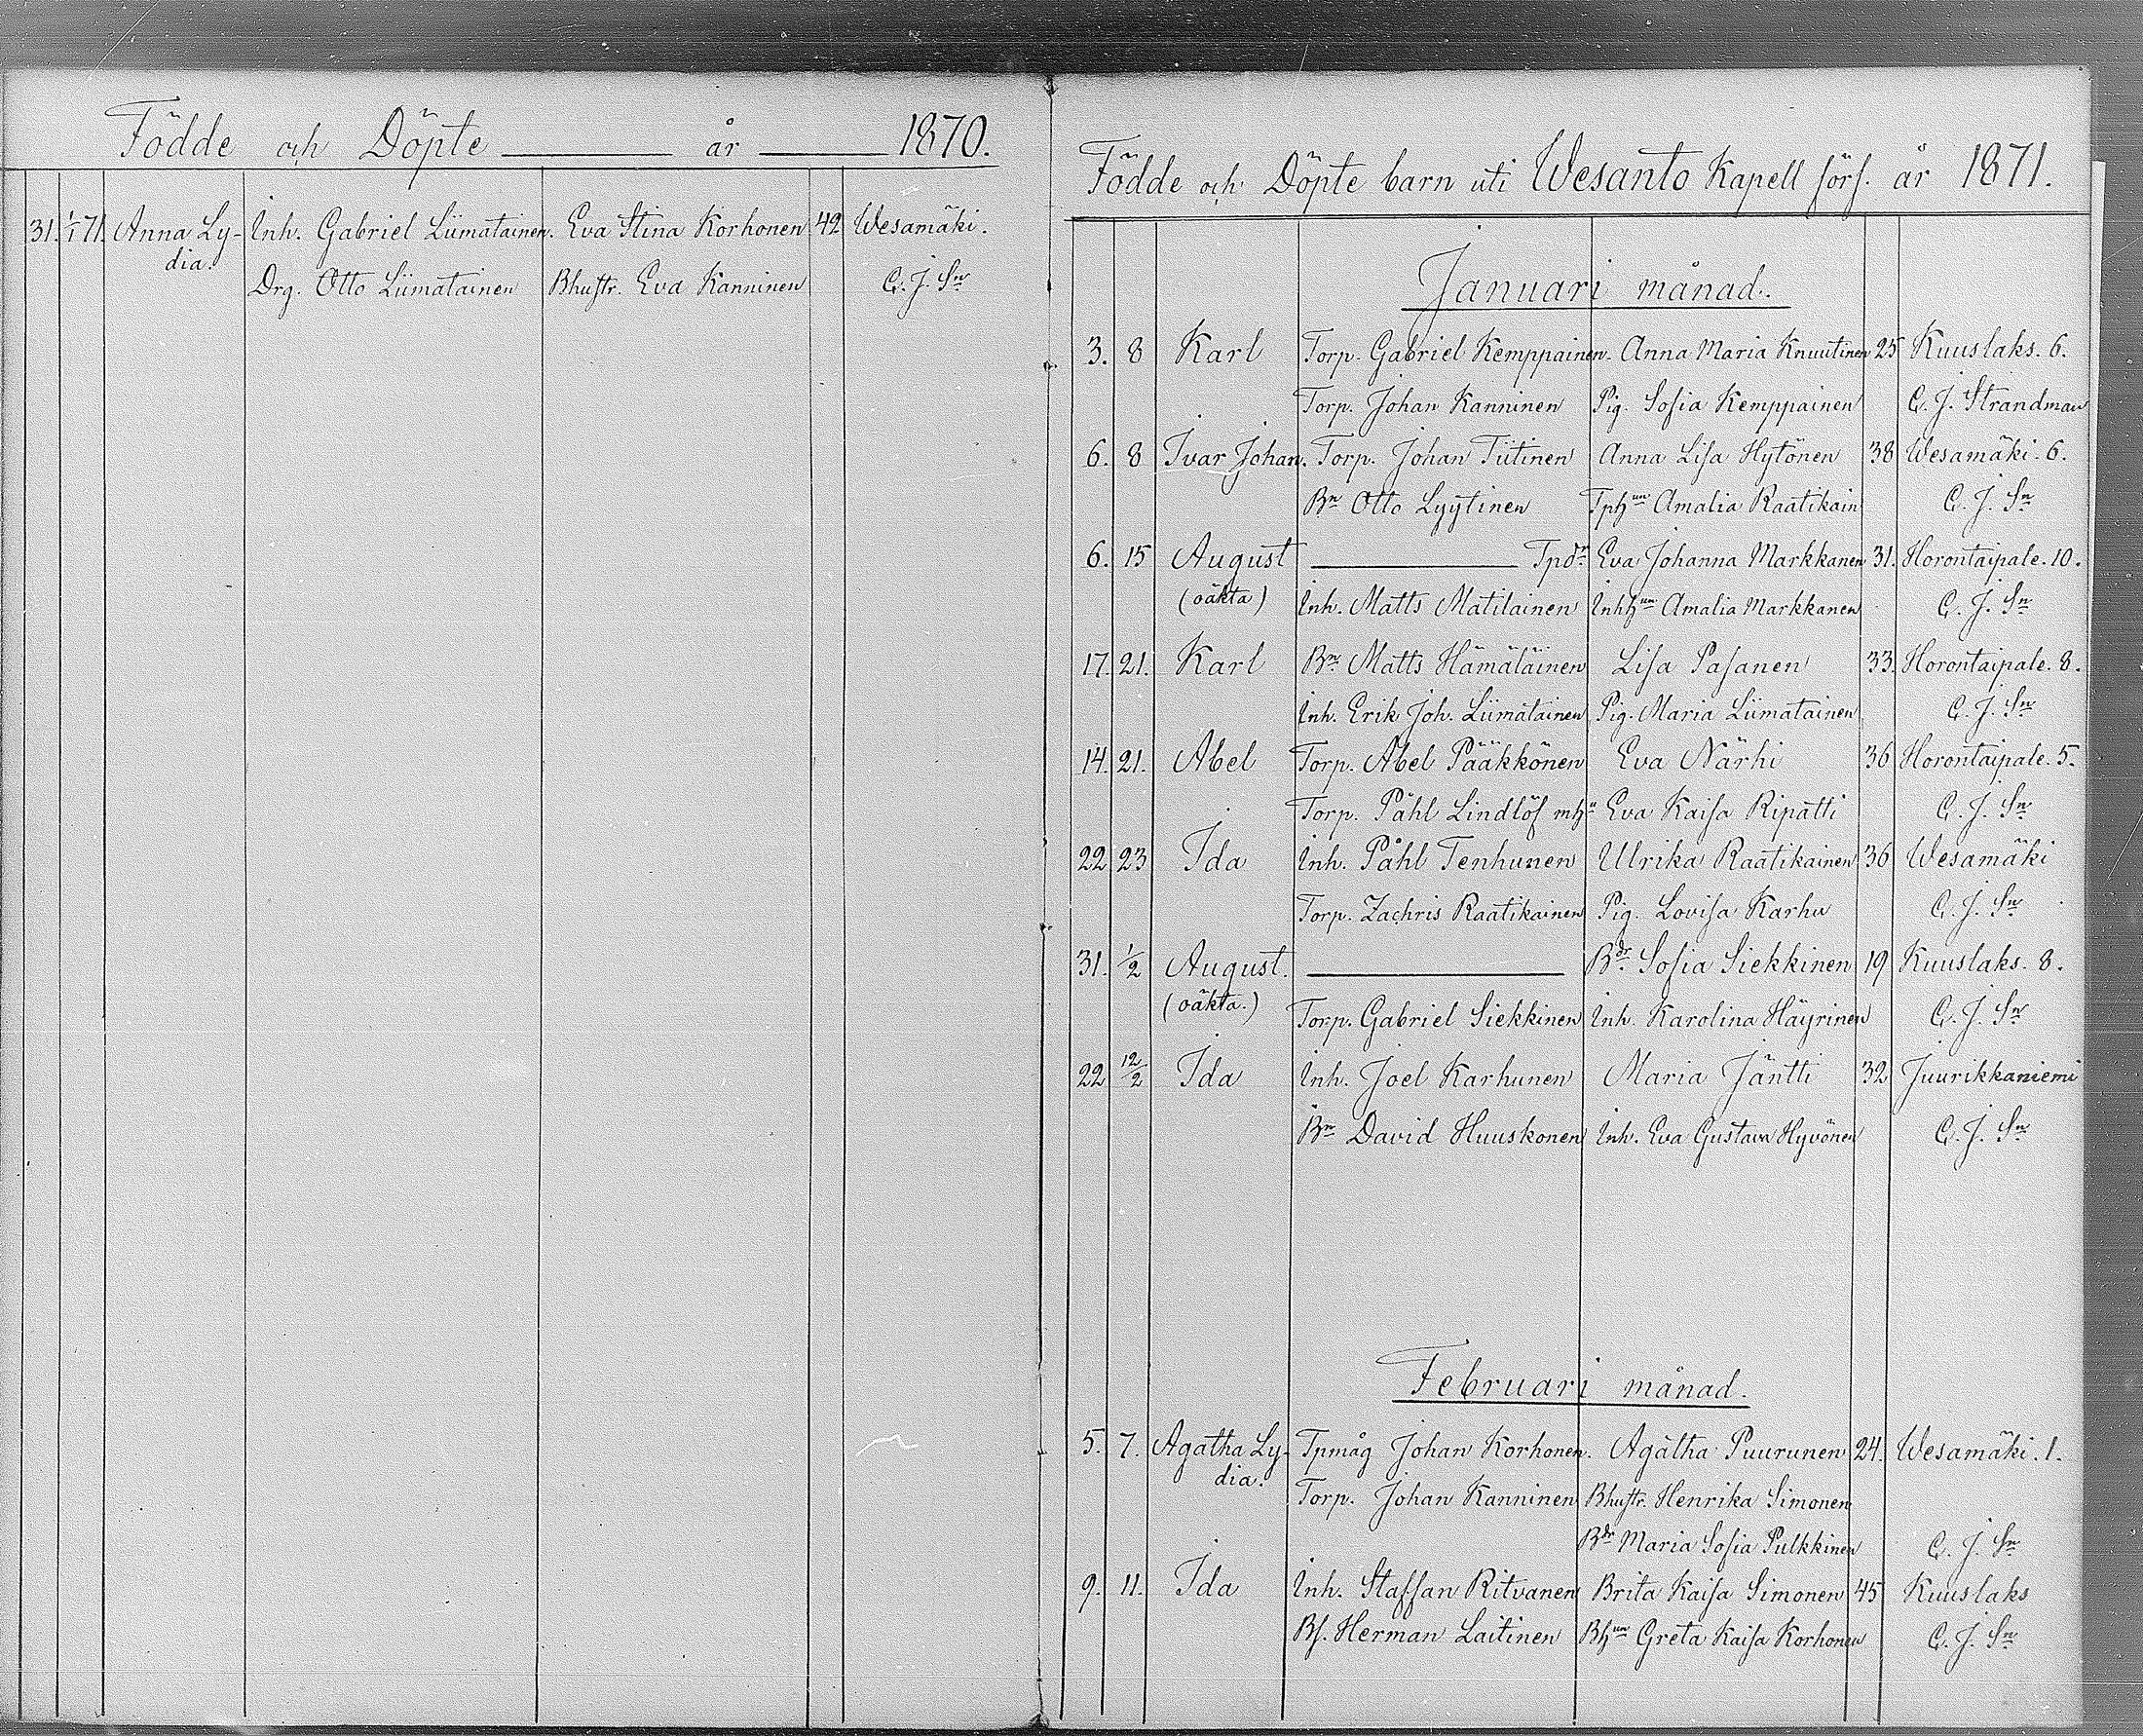 Födde och Döpte år 1870.
31. 1/1 71. Anna Ly- Inh. Gabriel Liimatainen. Eva Stina Korhonen 42 Wesamäki.
dia.
Drg. Otto Liimatainen Bhustr. Eva Kanninen C. J. Sn
Födde och Döpte barn uti Wesanto Kapell förs. år 1871.
Januari månad.
3. 8 Karl Torp. Gabriel Kemppainen. Anna Maria Knuutinen 25 Kuuslaks. 6.
Torp. Johan Kanninen Pig. Sofia Kemppainen C. J. Strandman
6. 8 Ivar Johan. Torp. Johan Tiitinen Anna Lisa Hytönen 38 Wesamäki. 6.
Bn Otto Lyytinen Tphun Amalia Raatikain C. J. Sn
6. 15 August Tpdr Eva Johanna Markkanen 31. Horontaipale. 10.
(oäkta) Inh. Matts Matilainen Inhhun Amalia Markkanen C. J. Sn
17. 21. Karl Bn Matts Hämäläinen Lisa Pasanen 33. Horontaipale. 8.
Inh. Erik Joh. Liimatainen Pig. Maria Liimatainen C. J. Sn
14. 21. Abel Torp. Abel Pääkkönen Eva Närhi 36 Horontaipale. 5.
Torp. Påhl Lindlöf mh Eva Kaisa Ripatti C. J. Sn
22 23 Ida Inh. Påhl Tenhunen Ulrika Raatikainen 36 Wesamäki
Torp. Zachris Raatikainen Pig. Lovisa Karhu C. J. Sn
31. 1/2 August. Bdr. Sofia Siekkinen 19 Kuuslaks. 8.
(oäkta.) Torp. Gabriel Siekkinen Inh. Karolina Häyrinen C. J. Sn
22 12/2 Ida Inh. Joel Karhunen Maria Jäntti 32 Juurikkaniemi
Bn David Huuskonen Inh. Eva Gustava Hyvönen C. J. Sn
Februari månad.
5. 7. Agatha Ly- Tpmåg Johan Korhonen. Agatha Puurunen 24. Wesamäki. 1.
dia. Torp. Johan Kanninen Bhustr. Henrika Simonen
Bdr Maria Sofia Pulkkinen C. J. Sn
9. 11. Ida Inh. Staffan Ritvanen Brita Kaisa Simonen 45 Kuuslaks
Bs. Herman Laitinen Bhun Greta Kaisa Korhonen C. J. Sn